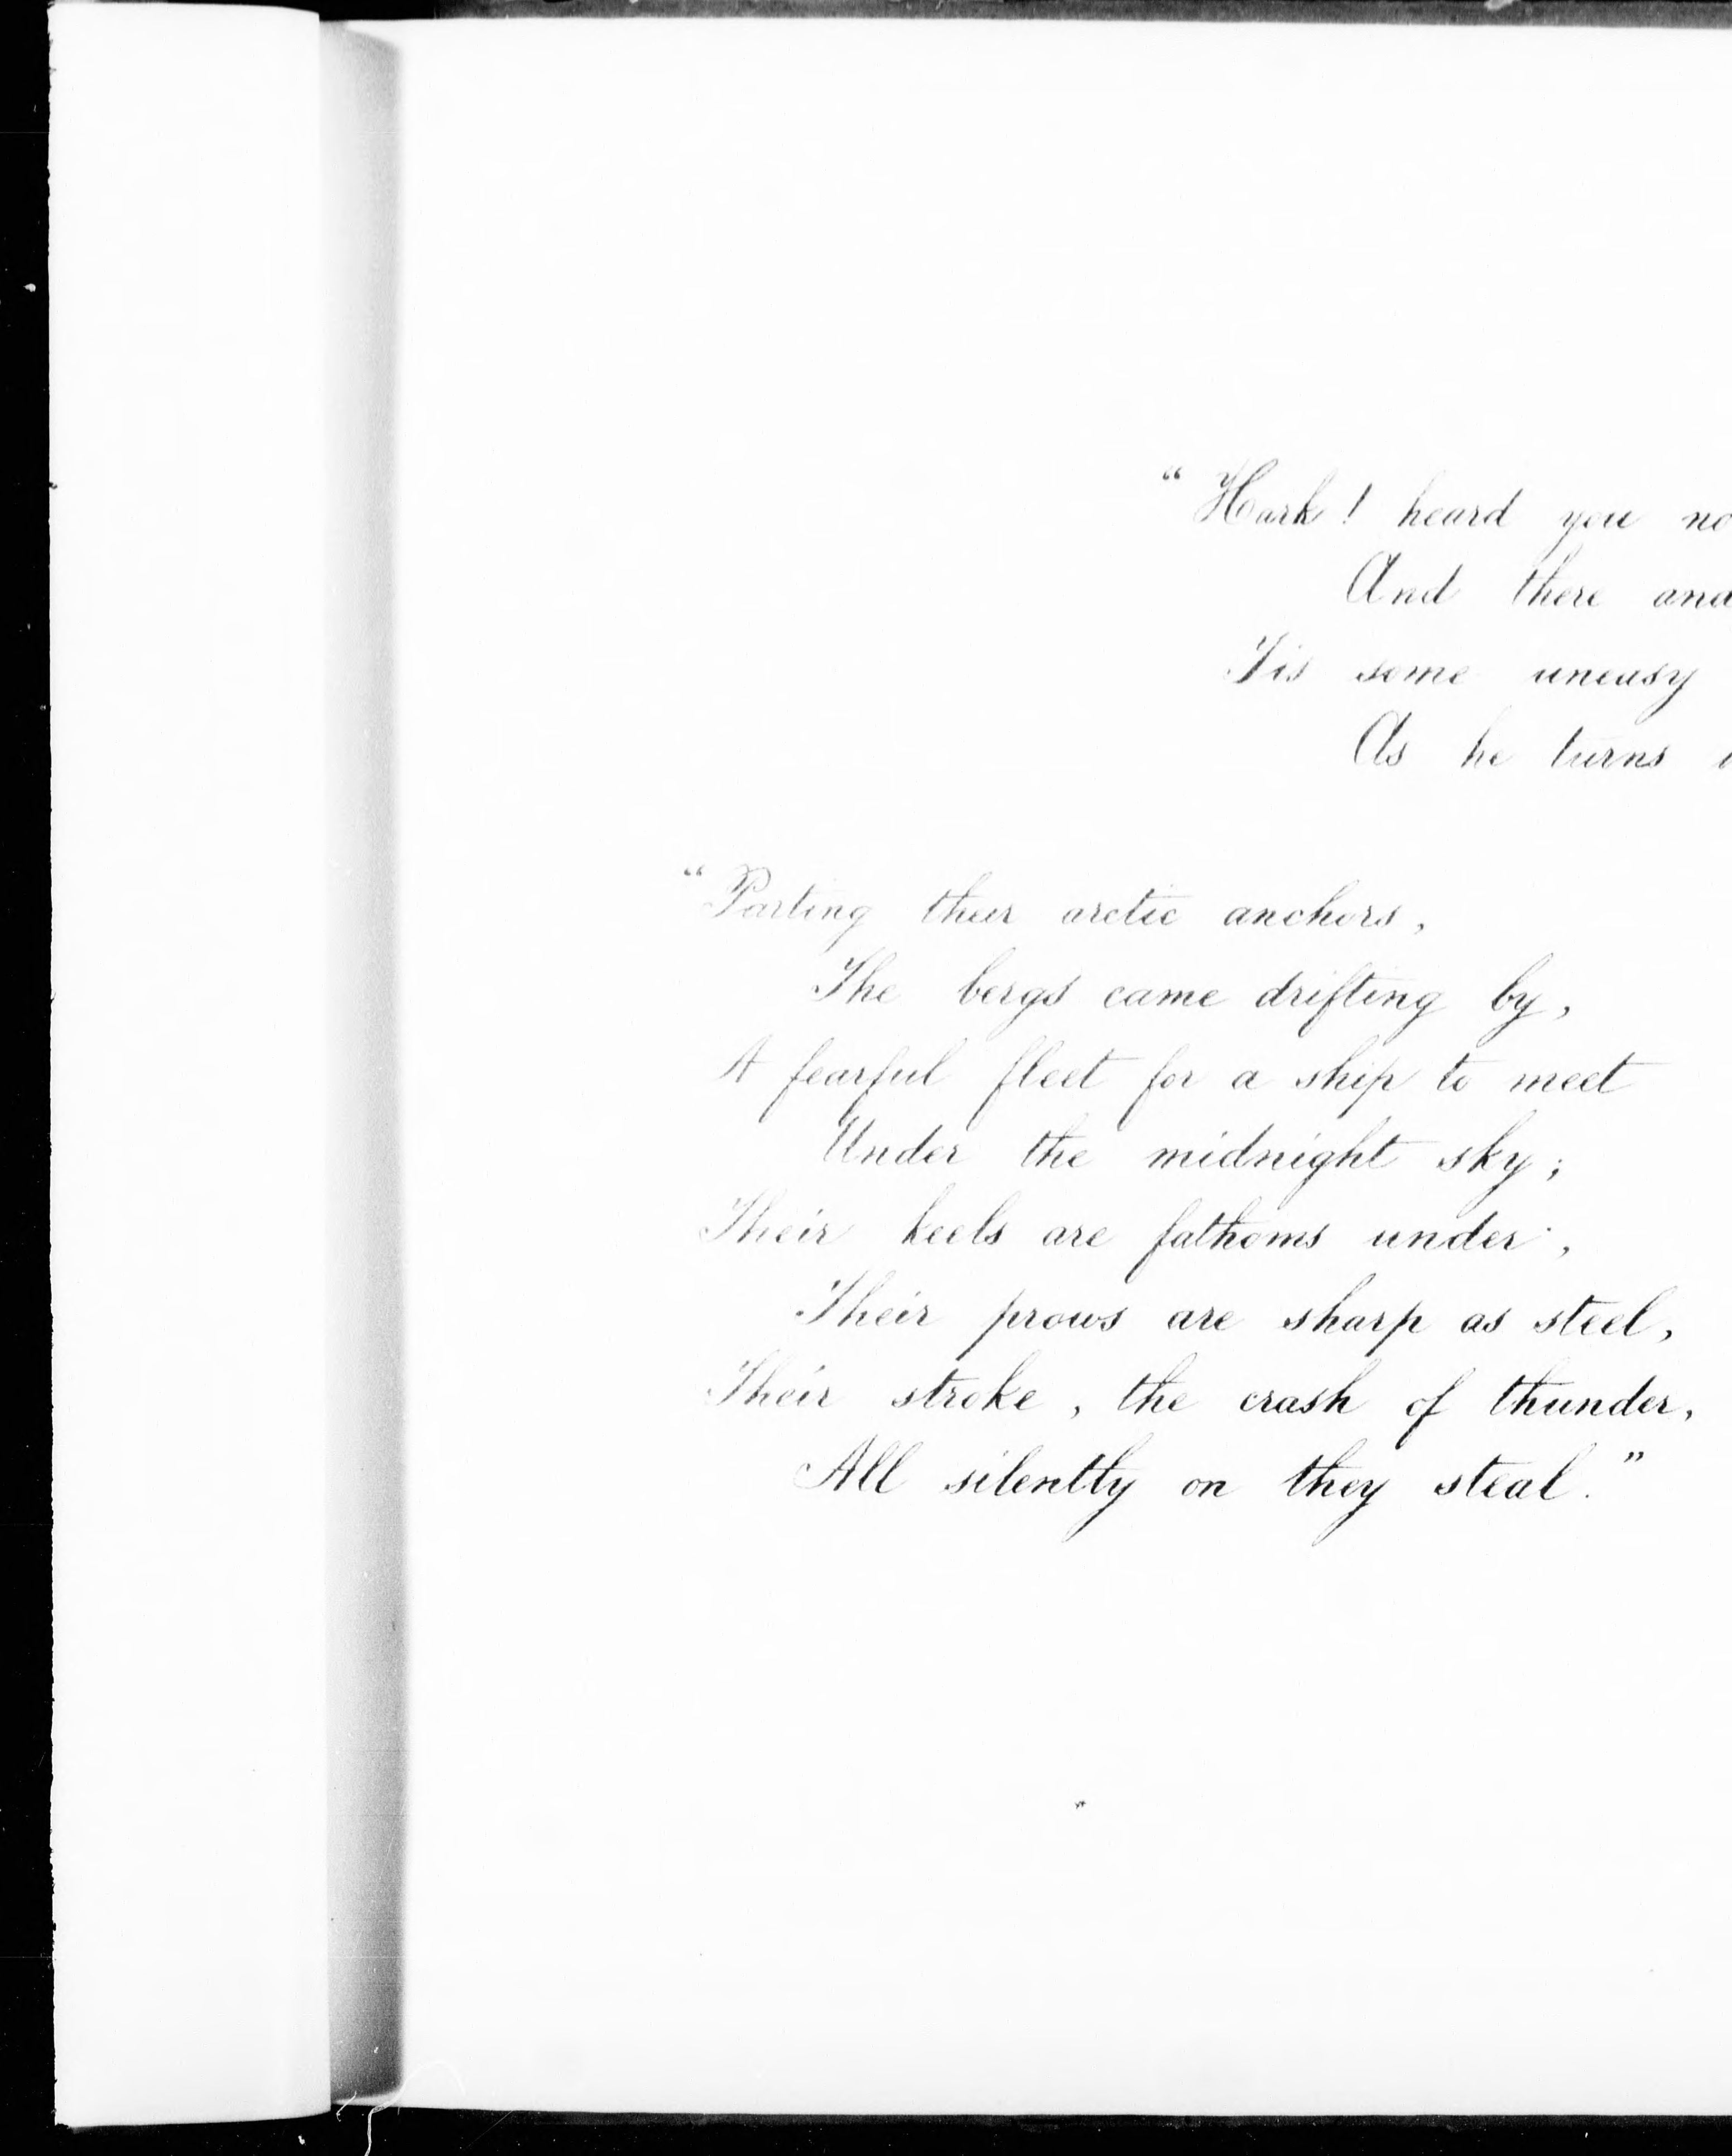 “Hark! heard you no
And there and
Tis some uneasy
As he turns
“Parting their arctic anchors,
The bergs came drifting by,
A fearful fleet for a ship to meet
Under the midnight sky;
Their keels are fathoms under,
Their prows are sharp as steel,
Their stroke, the crash of thunder,
All silently on they steal.”